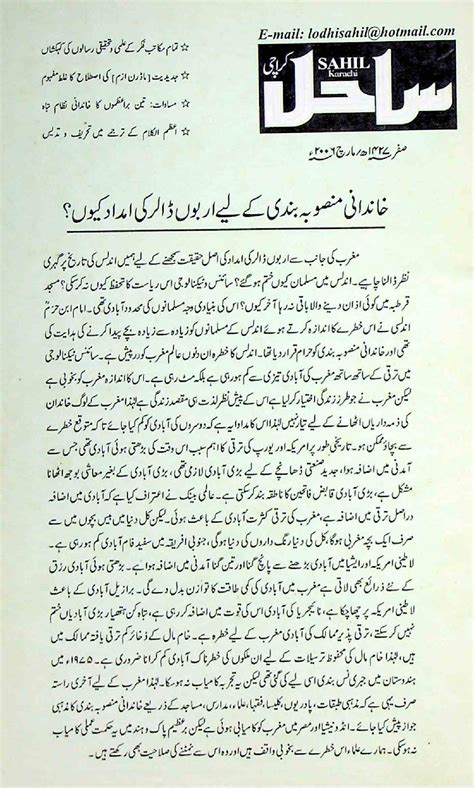 E-mail: lodhisahil@hotmail.com
☆ تمام مکاتب فکر کے علمی و تحقیقی رسالوں کی کہکشاں
☆ جدیدیت [ماڈرن ازم] کی اصطلاح کا غلط مفہوم
☆ مساوات: تین براعظموں کا خاندانی نظام تباہ
☆ اعظم الکلام کے ترجمے میں تحریف و تدلیس
SAHIL
Karachi
کراچی
ساحل
صفر ۱۴۲۷ھ / مارچ ۲۰۰۶ء
خاندانی منصوبہ بندی کے لیے اربوں ڈالر کی امداد کیوں؟
مغرب کی جانب سے اربوں ڈالر کی امداد کی اصل حقیقت سمجھنے کے لیے ہمیں اندلس کی تاریخ پر گہری
نظر ڈالنا چاہیے۔ اندلس میں مسلمان کیوں ختم ہو گئے؟ سائنس و ٹیکنالوجی اس ریاست کا تحفظ کیوں نہ کر سکی؟ مسجد
قرطبہ میں کوئی اذان دینے والا باقی نہ رہا آخر کیوں؟ اس کی بنیادی وجہ مسلمانوں کی محدود آبادی تھی۔ امام ابن حزم
اندلسی نے اس خطرے کا اندازہ کرتے ہوئے اندلس کے مسلمانوں کو زیادہ سے زیادہ بچے پیدا کرنے کی ہدایت کی
تھی اور خاندانی منصوبہ بندی کو حرام قرار دیا تھا۔ اندلس کا خطرہ ان دنوں عالم مغرب کو درپیش ہے۔ سائنس ٹیکنالوجی
میں ترقی کے ساتھ ساتھ مغرب کی آبادی تیزی سے کم ہو رہی ہے بلکہ مٹ رہی ہے۔ اس کا اندازہ مغرب کو بخوبی ہے
لیکن مغرب نے جو طرز زندگی اختیار کر لیا ہے اس کے پیش نظر لذت ہی مقصد زندگی ہے لہٰذا مغرب کے لوگ خاندان
کی ذمہ داریاں اٹھانے کے لیے تیار نہیں لہٰذا اس کا مداوا یہ ہے کہ دوسروں کی آبادی کو کم کیا جائے تا کہ متوقع خطرے
سے بچاؤ ممکن ہو۔ تاریخی طور پر امریکہ اور یورپ کی ترقی کا اہم سبب اس وقت کی بڑھتی ہوئی آبادی تھی جس سے
آمدنی میں اضافہ ہوا، جدید صنعتی ڈھانچے کے لیے بڑی آبادی لازمی تھی، بڑی آبادی کے بغیر معاشی بوجھ اٹھانا
مشکل ہے، بڑی آبادی قابض فاتحین کا ناطقہ بند کر سکتی ہے۔ عالمی بینک نے اعتراف کیا ہے کہ آبادی میں اضافہ
در اصل ترقی میں اضافہ ہے، مغرب کی ترقی کثرت آبادی کے باعث ہوئی۔ لیکن کل دنیا میں بیس بچوں میں سے
صرف ایک بچہ مغربی ہو گا، کل کی دنیا رنگ داروں کی دنیا ہو گی، جنوبی افریقہ میں سفید فام آبادی کم ہو رہی ہے۔
لاطینی امریکہ اور ایشیا میں آبادی بڑھنے سے پانچ گنا اور تین گنا آمدنی میں اضافہ ہوا۔ بڑھتی ہوئی آبادی رزق
کے نئے ذرائع بھی لاتی ہے مغرب میں آبادی کی کمی طاقت کا توازن بدل دے گی۔ برازیل آبادی کے باعث
لاطینی امریکہ پر چھا چکا ہے، نائیجریا کی آبادی اس کی قوت میں اضافہ کر رہی ہے، تباہ کن ہتھیار بڑی آبادیاں ختم
نہیں کر سکتے، ترقی پذیر ممالک کی آبادی مغرب کے لیے خطرہ ہے۔ خام مال کے ذخائر کم تر ترقی یافتہ ممالک میں
ہیں، لہٰذا خام مال کی محفوظ ترسیلات کے لیے ان ملکوں کی خطرناک آبادی کم کرانا ضروری ہے۔ ۱۹۷۵ء میں
ہندوستان میں جبری نس بندی اسی لیے کی گئی تھی لیکن یہ تجربہ کامیاب نہ ہو سکا۔ لہٰذا مغرب کے لیے آخری راستہ
صرف یہی ہے کہ مذہبی طبقات، پادریوں، کلیسا، فقہاء، علماء، مدارس، مساجد کے ذریعے خاندانی منصوبہ بندی کا مذہبی
جواز پیش کیا جائے۔ انڈونیشیا اور مصر میں مغرب کو کامیابی ہوئی ہے لیکن برعظیم پاک و ہند میں یہ حکمت عملی کامیاب
نہ ہو سکی۔ ہمارے علماء اس خطرے سے بخوبی واقف ہیں اور وہ اس سے نمٹنے کی صلاحیت بھی رکھتے ہیں۔